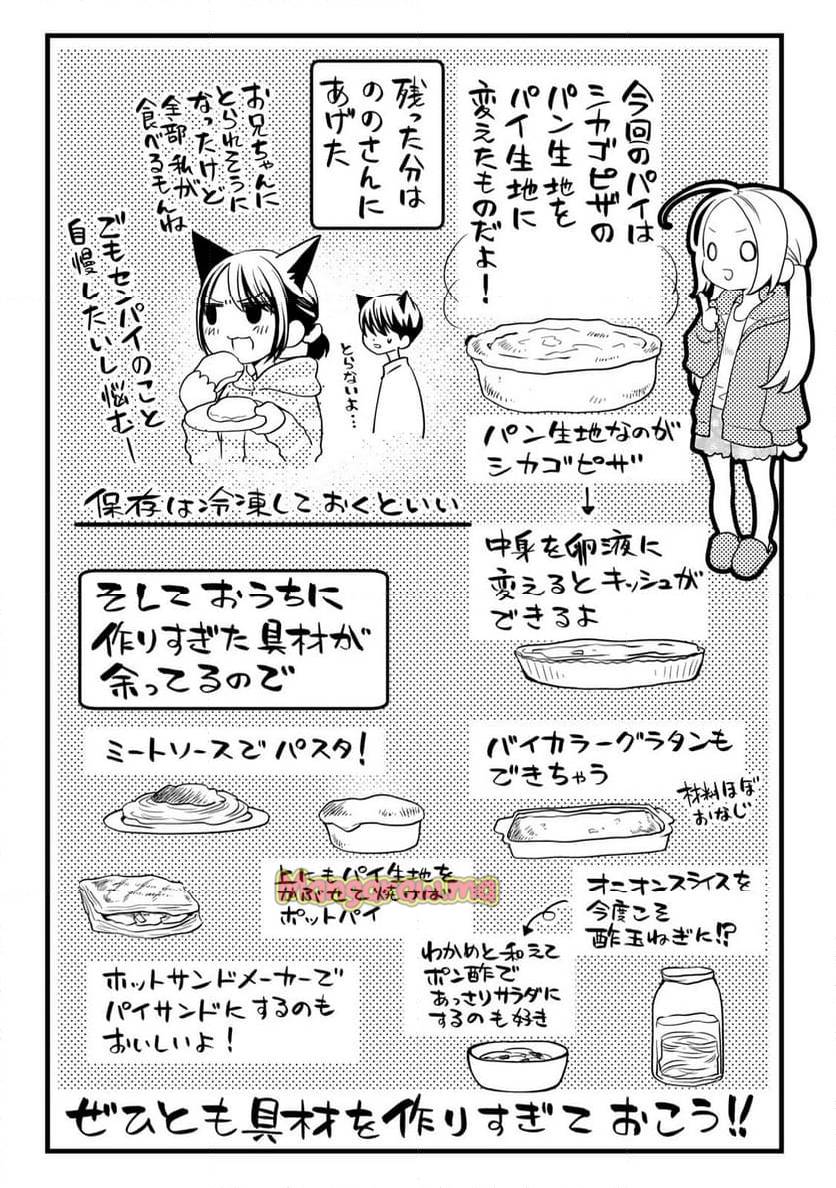 今回のパイは
シカゴピザの
パン生地を
パイ生地に
変えたものだよ!
残った分は
ののさんに
あげた
お兄ちゃんに
とられそうに
なったけど
全部私が
食べるもんね
でもセンパイのこと
自慢したいし悩むー
とらないよ…
パン生地なのが
シカゴピザ
↓
中身を卵液に
変えるとキッシュが
できるよ
保存は冷凍しておくといい
そしておうちに
作りすぎた具材が
余ってるので
ミートソースでパスタ!
バイカラーグラタンも
できちゃう
材料ほぼ
おなじ
パイ生地を
焼けば
ポットパイ
Mangarawuma
オニオンスライスを
今度こそ
酢玉ねぎに!?
わかめと和えて
ポン酢で
あっさりサラダに
するのも好き
ホットサンドメーカーで
パイサンドにするのも
おいしいよ!
ぜひとも具材を作りすぎておこう!!